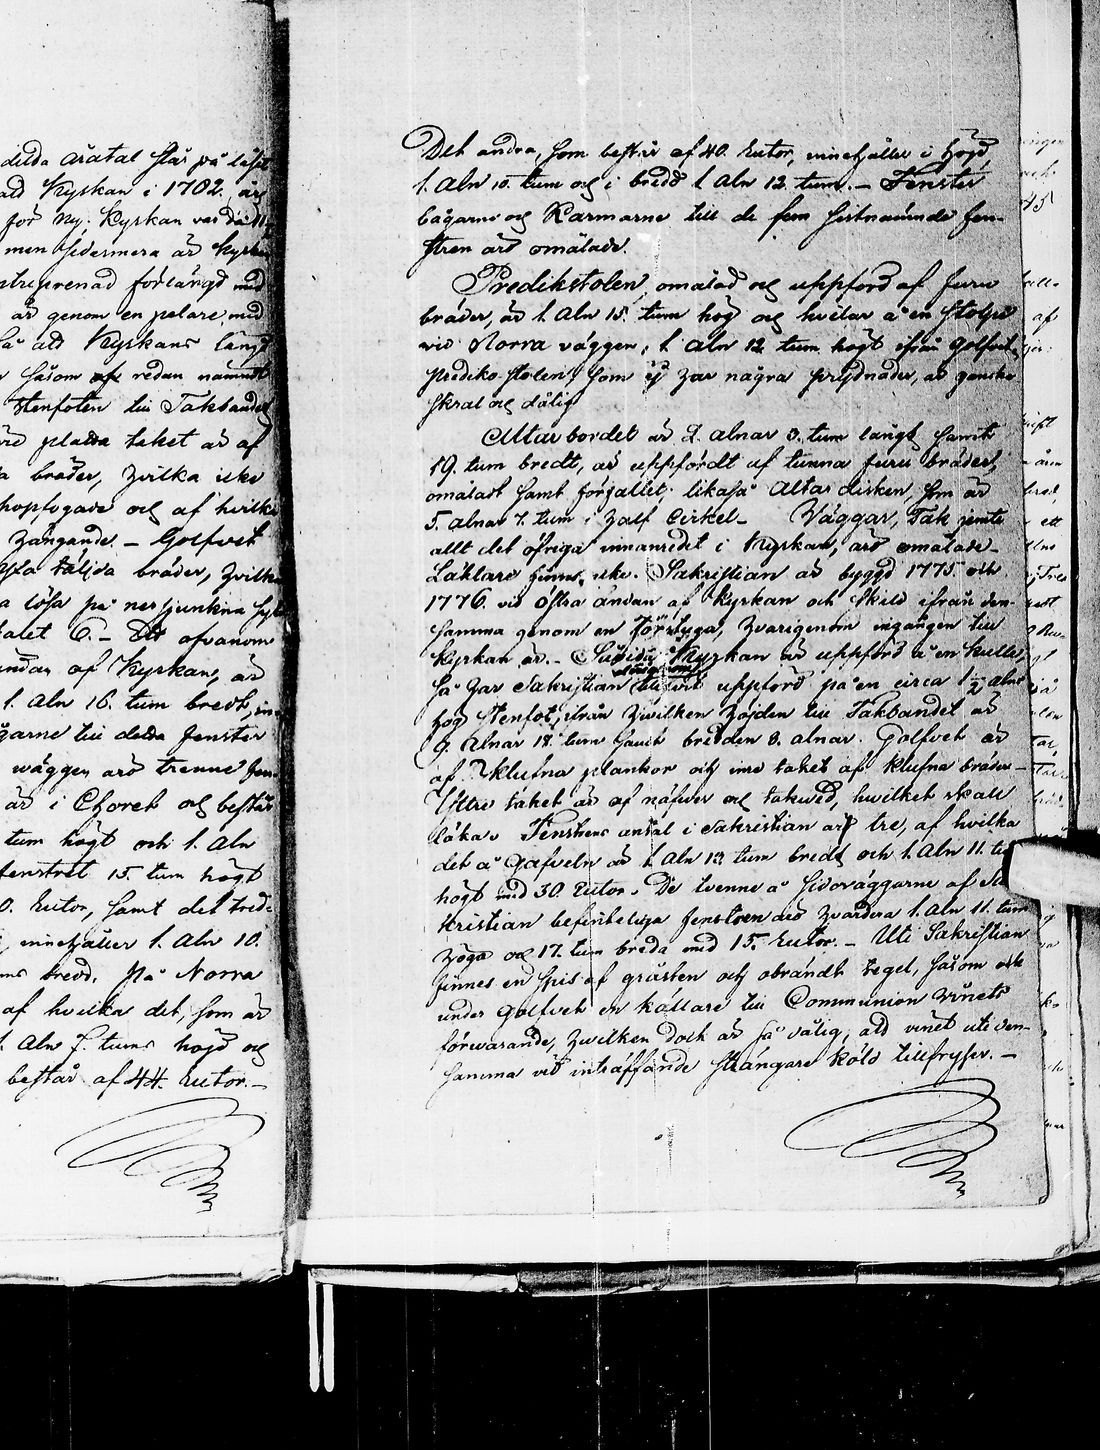 delda åratal står på
att Kyrkan i 1702. års
för ny; Kyrkan var då
men sidermera är Kyrkan
förlängd med
är genom en pelare, med
så att Kyrkans längd
såsom redan nämndt
stenfoten till Takbandet
taket är af
bräder, hvilka icke
hopfogade och af hvilka
hängande. – Golfvet
täljda bräder, hvilka
lösa på nersjunkna
6. – Det ofvanom
ändan af Kyrkan, är
1. Aln 16. tum bredt,
till detta fenster
wäggen äro trenne fen-
är i Choret och består
tum högt och 1. Aln
fenstret 15. tum högt
0. Rutor, samt det tred-
innehåller 1. Aln 10.
bredd. På Norra
af hvilka det, som är
1. Aln 7. tums höjd og
består af 44. Rutor. –
Det andra, som består af 40. Rutor, innehåller i höjd
1. Aln 10. tum og i bredd 1 Aln 12. tum. – Fenster
bågarne og Karmarne till de fem sistnämnde fen-
stren äro omålade.
Predikstolen, omålad og uppförd af furu
bräder, är 1. Aln 15. tum hög og hvilar å en stolpe
vid Norra väggen, 1 Aln 12 tum högt ifrån golfvet.
prediko-stolen, som ej har några prydnader, är ganska
skral og dålig
Altar bordet är 2. alnar 3. tum långt samt
19. tum bredt, är uppfördt af tunna furu bräder,
omåladt samt förfallet; likaså Altar disken, som är
5. alnar 7. tum i half Cirkel. – Väggar, Tak jemte
allt det öfriga innanredet i Kyrkan, äro omålade. –
Läktare finnes icke. Sakristian är byggd 1775. och
1776. vid östra ändan af Kyrkan och skild ifrån den-
samma genom en förstuga, hvarigenom ingången till
Kyrkan är. – Kyrkan är uppförd å en kulle,
så har Sakristian blifvit uppförd på en circa 1 1/2 alns
hög stenfot, ifrån hvilken höjden till Takbandet är
9. Alnar 18. tum samt bredden 8. alnar. Golfvet är
af klufna plankor och inre taket af klufna bräder –
Yttre taket är af näfver og takved, hwilket skall
läka. Fenstrens antal i Sakristian är tre, af hvilka
det å Gafveln är 1 Aln 13 tum bredt och 1. Aln 11. tum
högt med 30 Rutor. De tvenne å sidoväggarne af Sa-
kristian befinteliga fenstren äro hvardera 1. Aln 11. tum
höga og 17. tum breda med 15. Rutor. – Uti Sakristian
finnes en spis af gråsten och obrändt tegel, såsom ock
under golfvet en källare till Communion vinets
förwarande, hwilken dock är så dålig, att vinet uti den-
samma vid inträffande strängare köld tillfryser. –